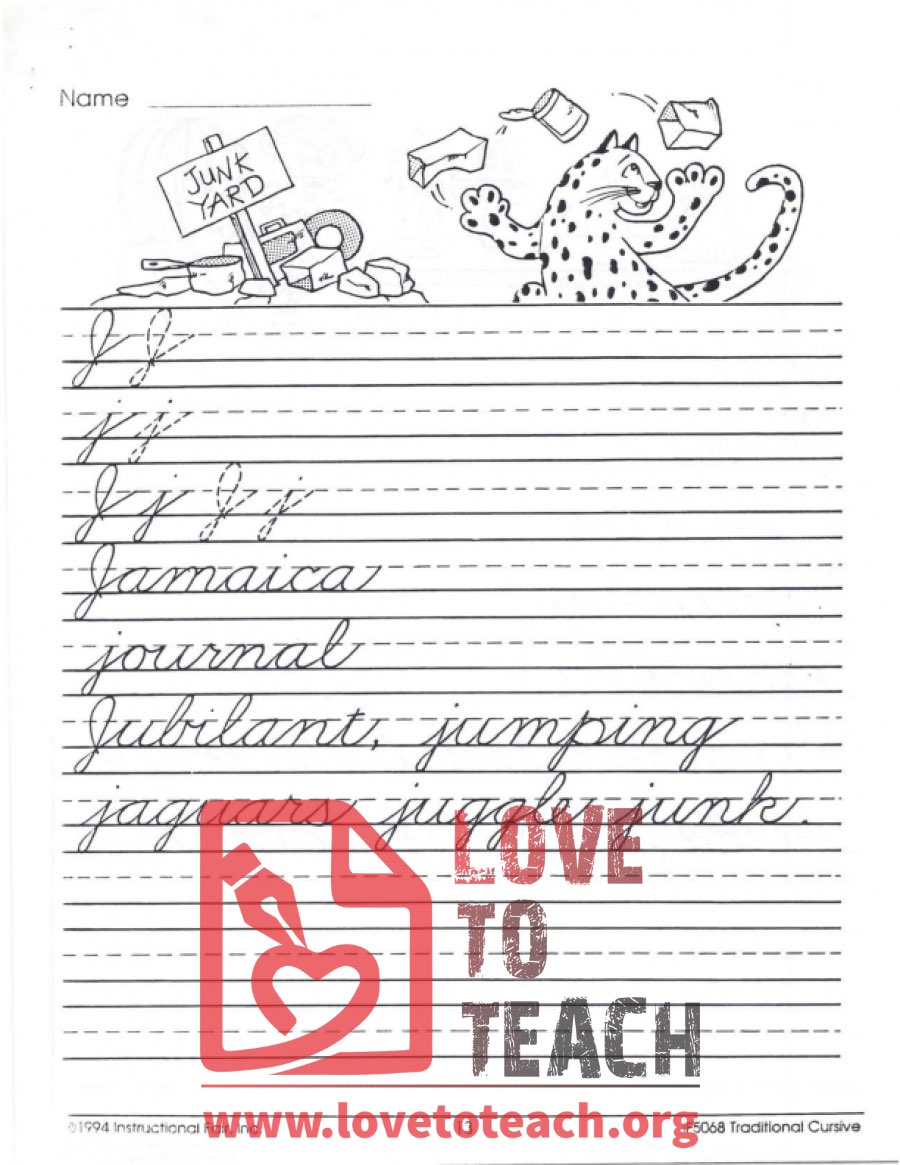 Name
JUNK
YARD
J J
j j
J j J j
Jamaica
journal
Jubilant, jumping
jaguars juggle junk.
LOVE
TO
TEACH
www.lovetoteach.org
©1994 Instructional Fair, Inc. 13 IF5068 Traditional Cursive